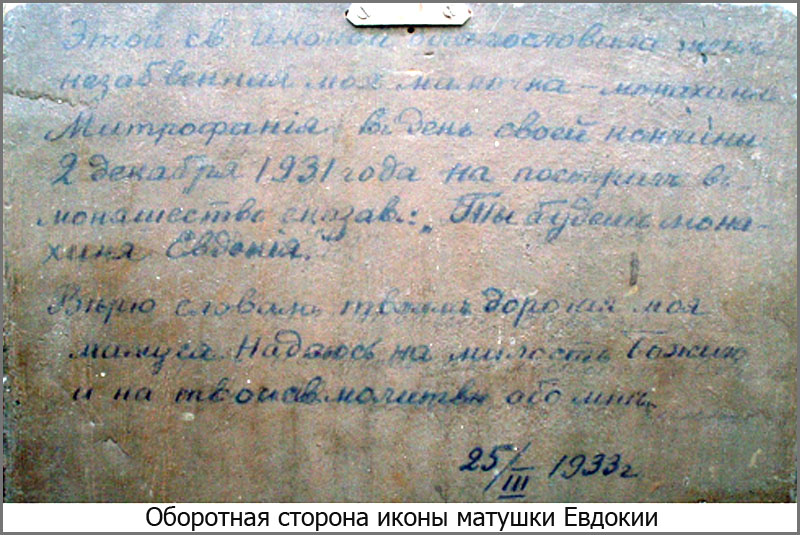 Этой св. иконой благословила меня
незабвенная моя мамочка – монахиня
Митрофанія въ день своей кончины
2 декабря 1931 года на постригъ въ
монашество сказав: „Ты будешь мона-
хиня Евдокія."
Вѣрю словамъ твоимъ дорогая моя
мамуся. Надѣюсь на милость Божию
и на твои св. молитвы обо мнѣ.
25/III 1933 г.
Оборотная сторона иконы матушки Евдокии